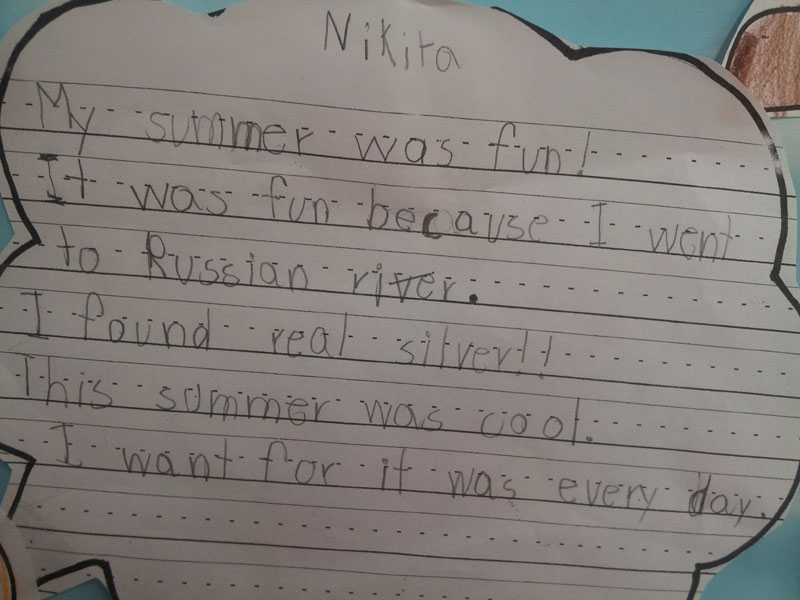 Nikita
My summer was fun!
It was fun because I went
to Russian river.
I found real silver!!
This summer was cool.
I want for it was every day.